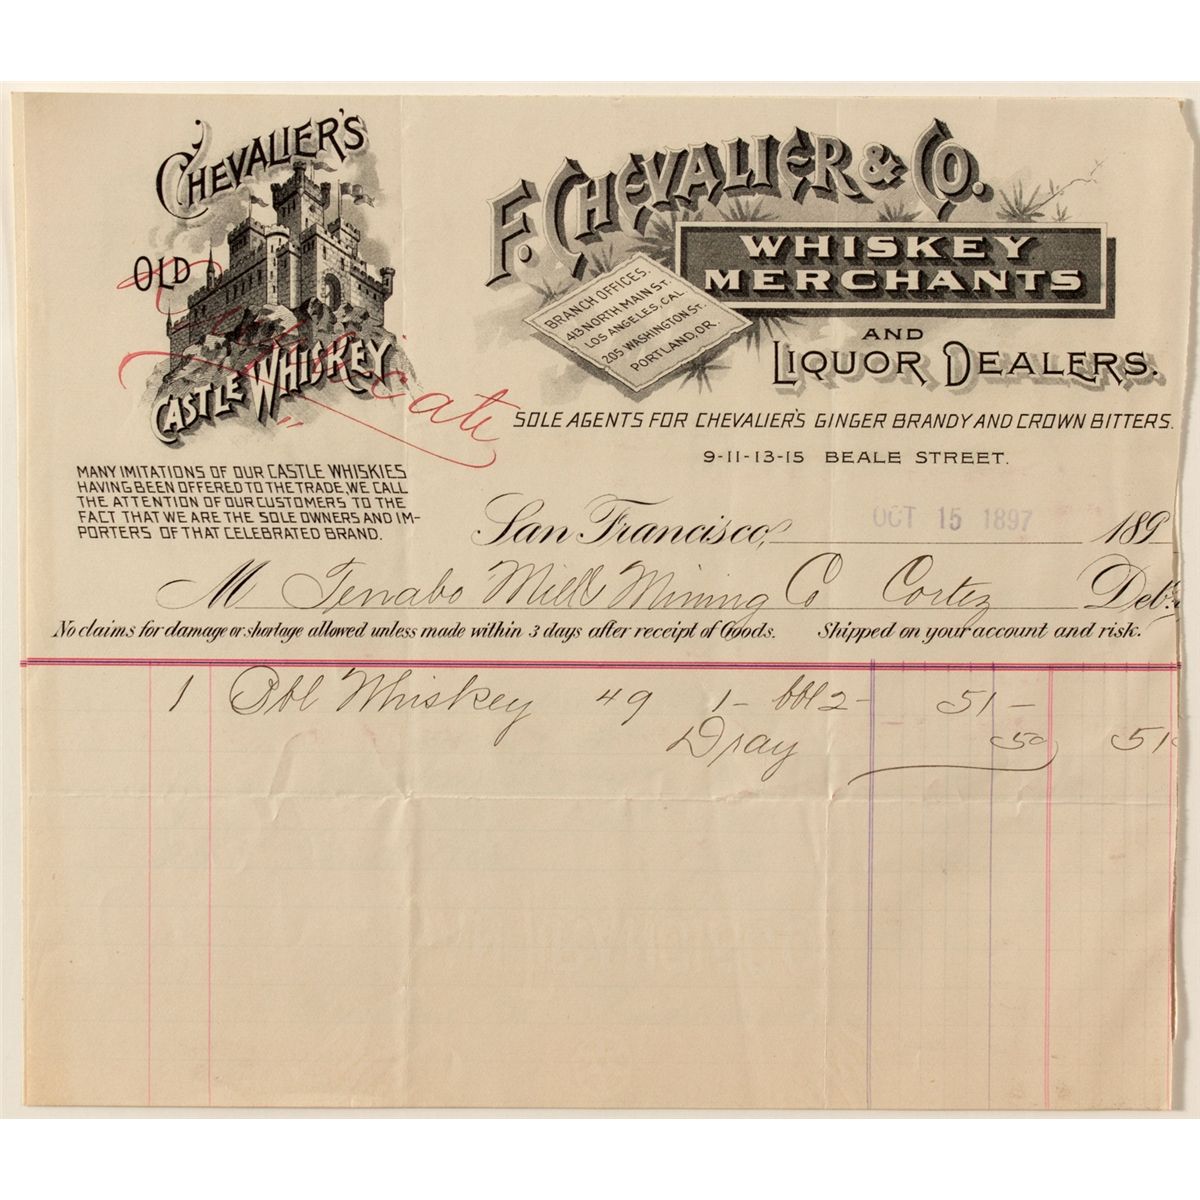 CHEVALIER'S
OLD
CASTLE WHISKEY
Duplicate
F. CHEVALIER & CO.
WHISKEY
MERCHANTS
AND
LIQUOR DEALERS.
BRANCH OFFICES.
413 NORTH MAIN ST.
LOS ANGELES, CAL
205 WASHINGTON ST.
PORTLAND, OR.
SOLE AGENTS FOR CHEVALIER'S GINGER BRANDY AND CROWN BITTERS.
9-11-13-15 BEALE STREET.
MANY IMITATIONS OF OUR CASTLE WHISKIES
HAVING BEEN OFFERED TO THE TRADE, WE CALL
THE ATTENTION OF OUR CUSTOMERS TO THE
FACT THAT WE ARE THE SOLE OWNERS AND IM-
PORTERS OF THAT CELEBRATED BRAND.
San Francisco, OCT 15 1897 189
M Tenabo Mill & Mining Co Cortez Debr.
No claims for damage or shortage allowed unless made within 3 days after receipt of Goods. Shipped on your account and risk.
1 Bbl Whiskey 49 1- bbl 2- 51 -
Dray 50 51